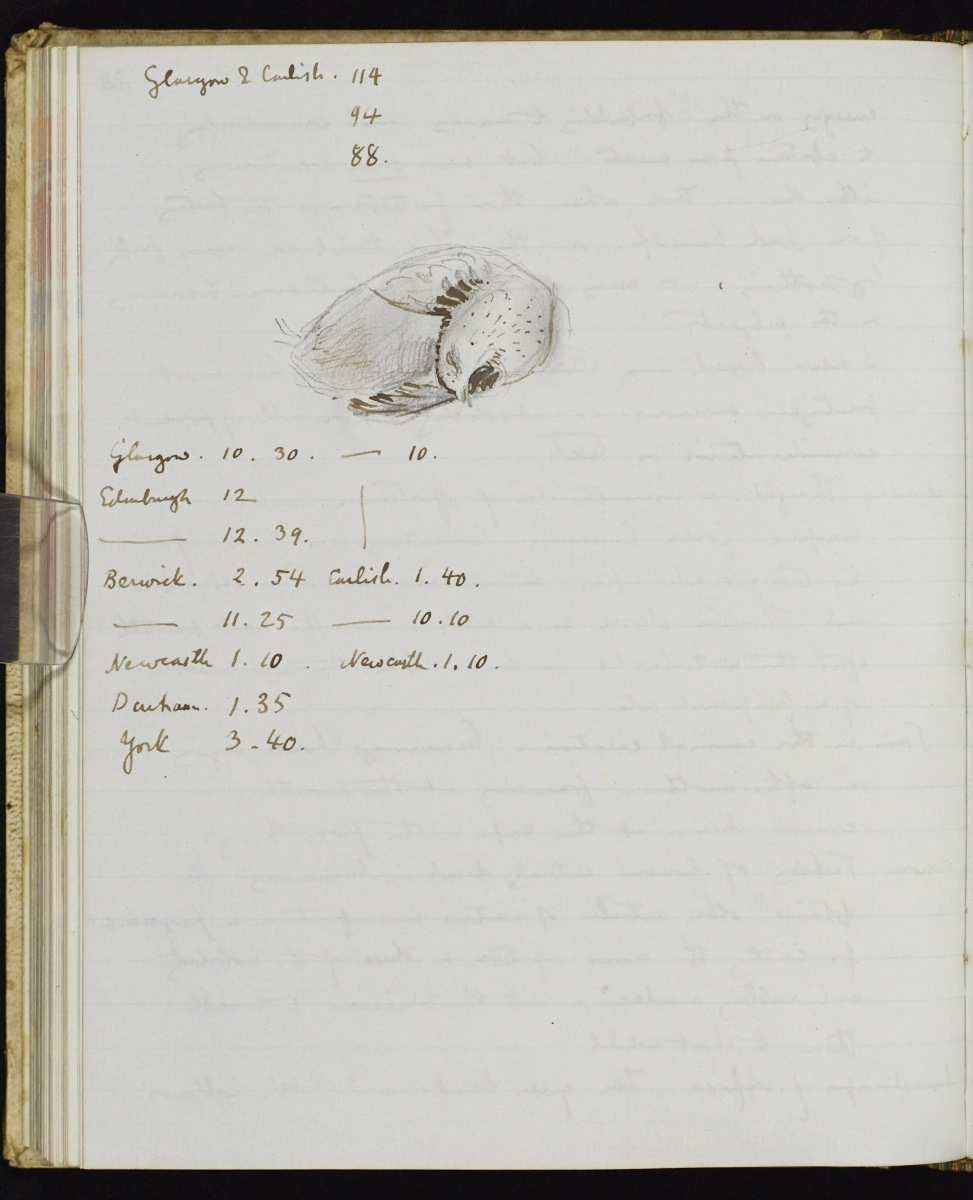 Glasgow & Carlisle. 114
94
88.
Glasgow. 10. 30. — 10.
Edinburgh 12
— 12. 39.
Berwick. 2. 54 Carlisle. 1. 40.
— 11. 25 — 10.10
Newcastle 1. 10. Newcastle. 1. 10.
Durham. 1. 35
York 3 - 40.